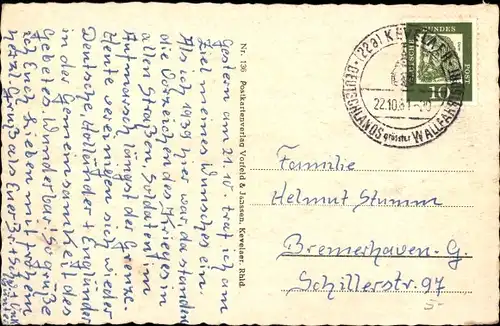 Gestern am 21.10. traf ich am
Ziel meines Wunsches ein.
Als ich 1939 hier war, da standen
die Vorzeichen des Krieges in
allen Straßen, Soldaten im
Aufmarsch längst der Grenze
Heute vereinigen sich wieder
Deutsche, Holländer + Engländer
in der Gemeinsamkeit des
Gebetes. Wunderbar! So grüße
ich Euch Lieben mit
herzl. Gruß als Euer
Nr. 136 Postkartenverlag Vorfeld & Janssen, Kevelaer, Rhld.
(22a) KEVELAER
22.10.61
DEUTSCHLANDS grösster WALLFAHRTSORT
DEUTSCHE BUNDESPOST
10
Familie
Helmut Stumm
Bremerhaven-G.
Schillerstr. 97